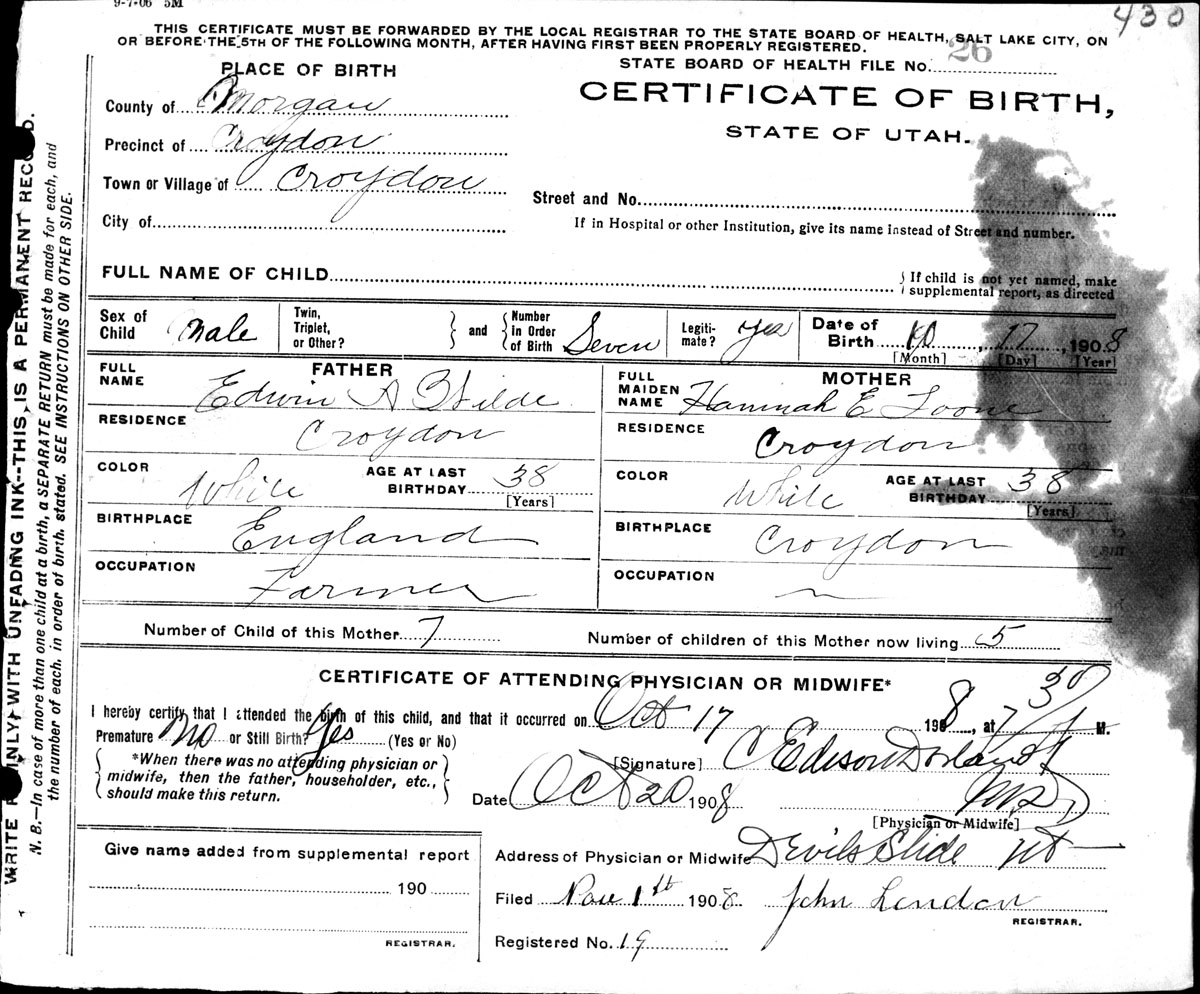 9-7-06 5M
430
THIS CERTIFICATE MUST BE FORWARDED BY THE LOCAL REGISTRAR TO THE STATE BOARD OF HEALTH, SALT LAKE CITY, ON
OR BEFORE THE 5TH OF THE FOLLOWING MONTH, AFTER HAVING FIRST BEEN PROPERLY REGISTERED.
PLACE OF BIRTH
STATE BOARD OF HEALTH FILE No. 26
County of Morgan
CERTIFICATE OF BIRTH,
STATE OF UTAH.
Precinct of Croydon
Town or Village of Croydon
Street and No.
City of
If in Hospital or other Institution, give its name instead of Street and number.
FULL NAME OF CHILD
If child is not yet named, make
supplemental report, as directed
Sex of Child Male
Twin, Triplet, or Other?
and
Number in Order of Birth Seven
Legiti-mate? Yes
Date of Birth 10, 17, 1908
[Month] [Day] [Year]
FATHER
FULL NAME Edwin A Wilde
RESIDENCE Croydon
COLOR White
AGE AT LAST BIRTHDAY 38
[Years]
BIRTHPLACE England
OCCUPATION Farmer
MOTHER
FULL MAIDEN NAME Hannah E Toone
RESIDENCE Croydon
COLOR White
AGE AT LAST BIRTHDAY 38
[Years]
BIRTHPLACE Croydon
OCCUPATION
Number of Child of this Mother 7
Number of children of this Mother now living 5
CERTIFICATE OF ATTENDING PHYSICIAN OR MIDWIFE*
I hereby certify that I attended the birth of this child, and that it occurred on Oct 17 1908, at 7 30 M.
Premature No or Still Birth? Yes (Yes or No)
*When there was no attending physician or
midwife, then the father, householder, etc.,
should make this return.
[Signature] C Edison Dorland
M.D.
Date Oct 20 1908
[Physician or Midwife]
Give name added from supplemental report
190
REGISTRAR.
Address of Physician or Midwife Devils Slide Ut
Filed Nov 1th 1908 John London
REGISTRAR.
Registered No. 19
WRITE PLAINLY WITH UNFADING INK--THIS IS A PERMANENT RECORD.
N. B.—In case of more than one child at a birth, a SEPARATE RETURN must be made for each, and
the number of each, in order of birth, stated. SEE INSTRUCTIONS ON OTHER SIDE.